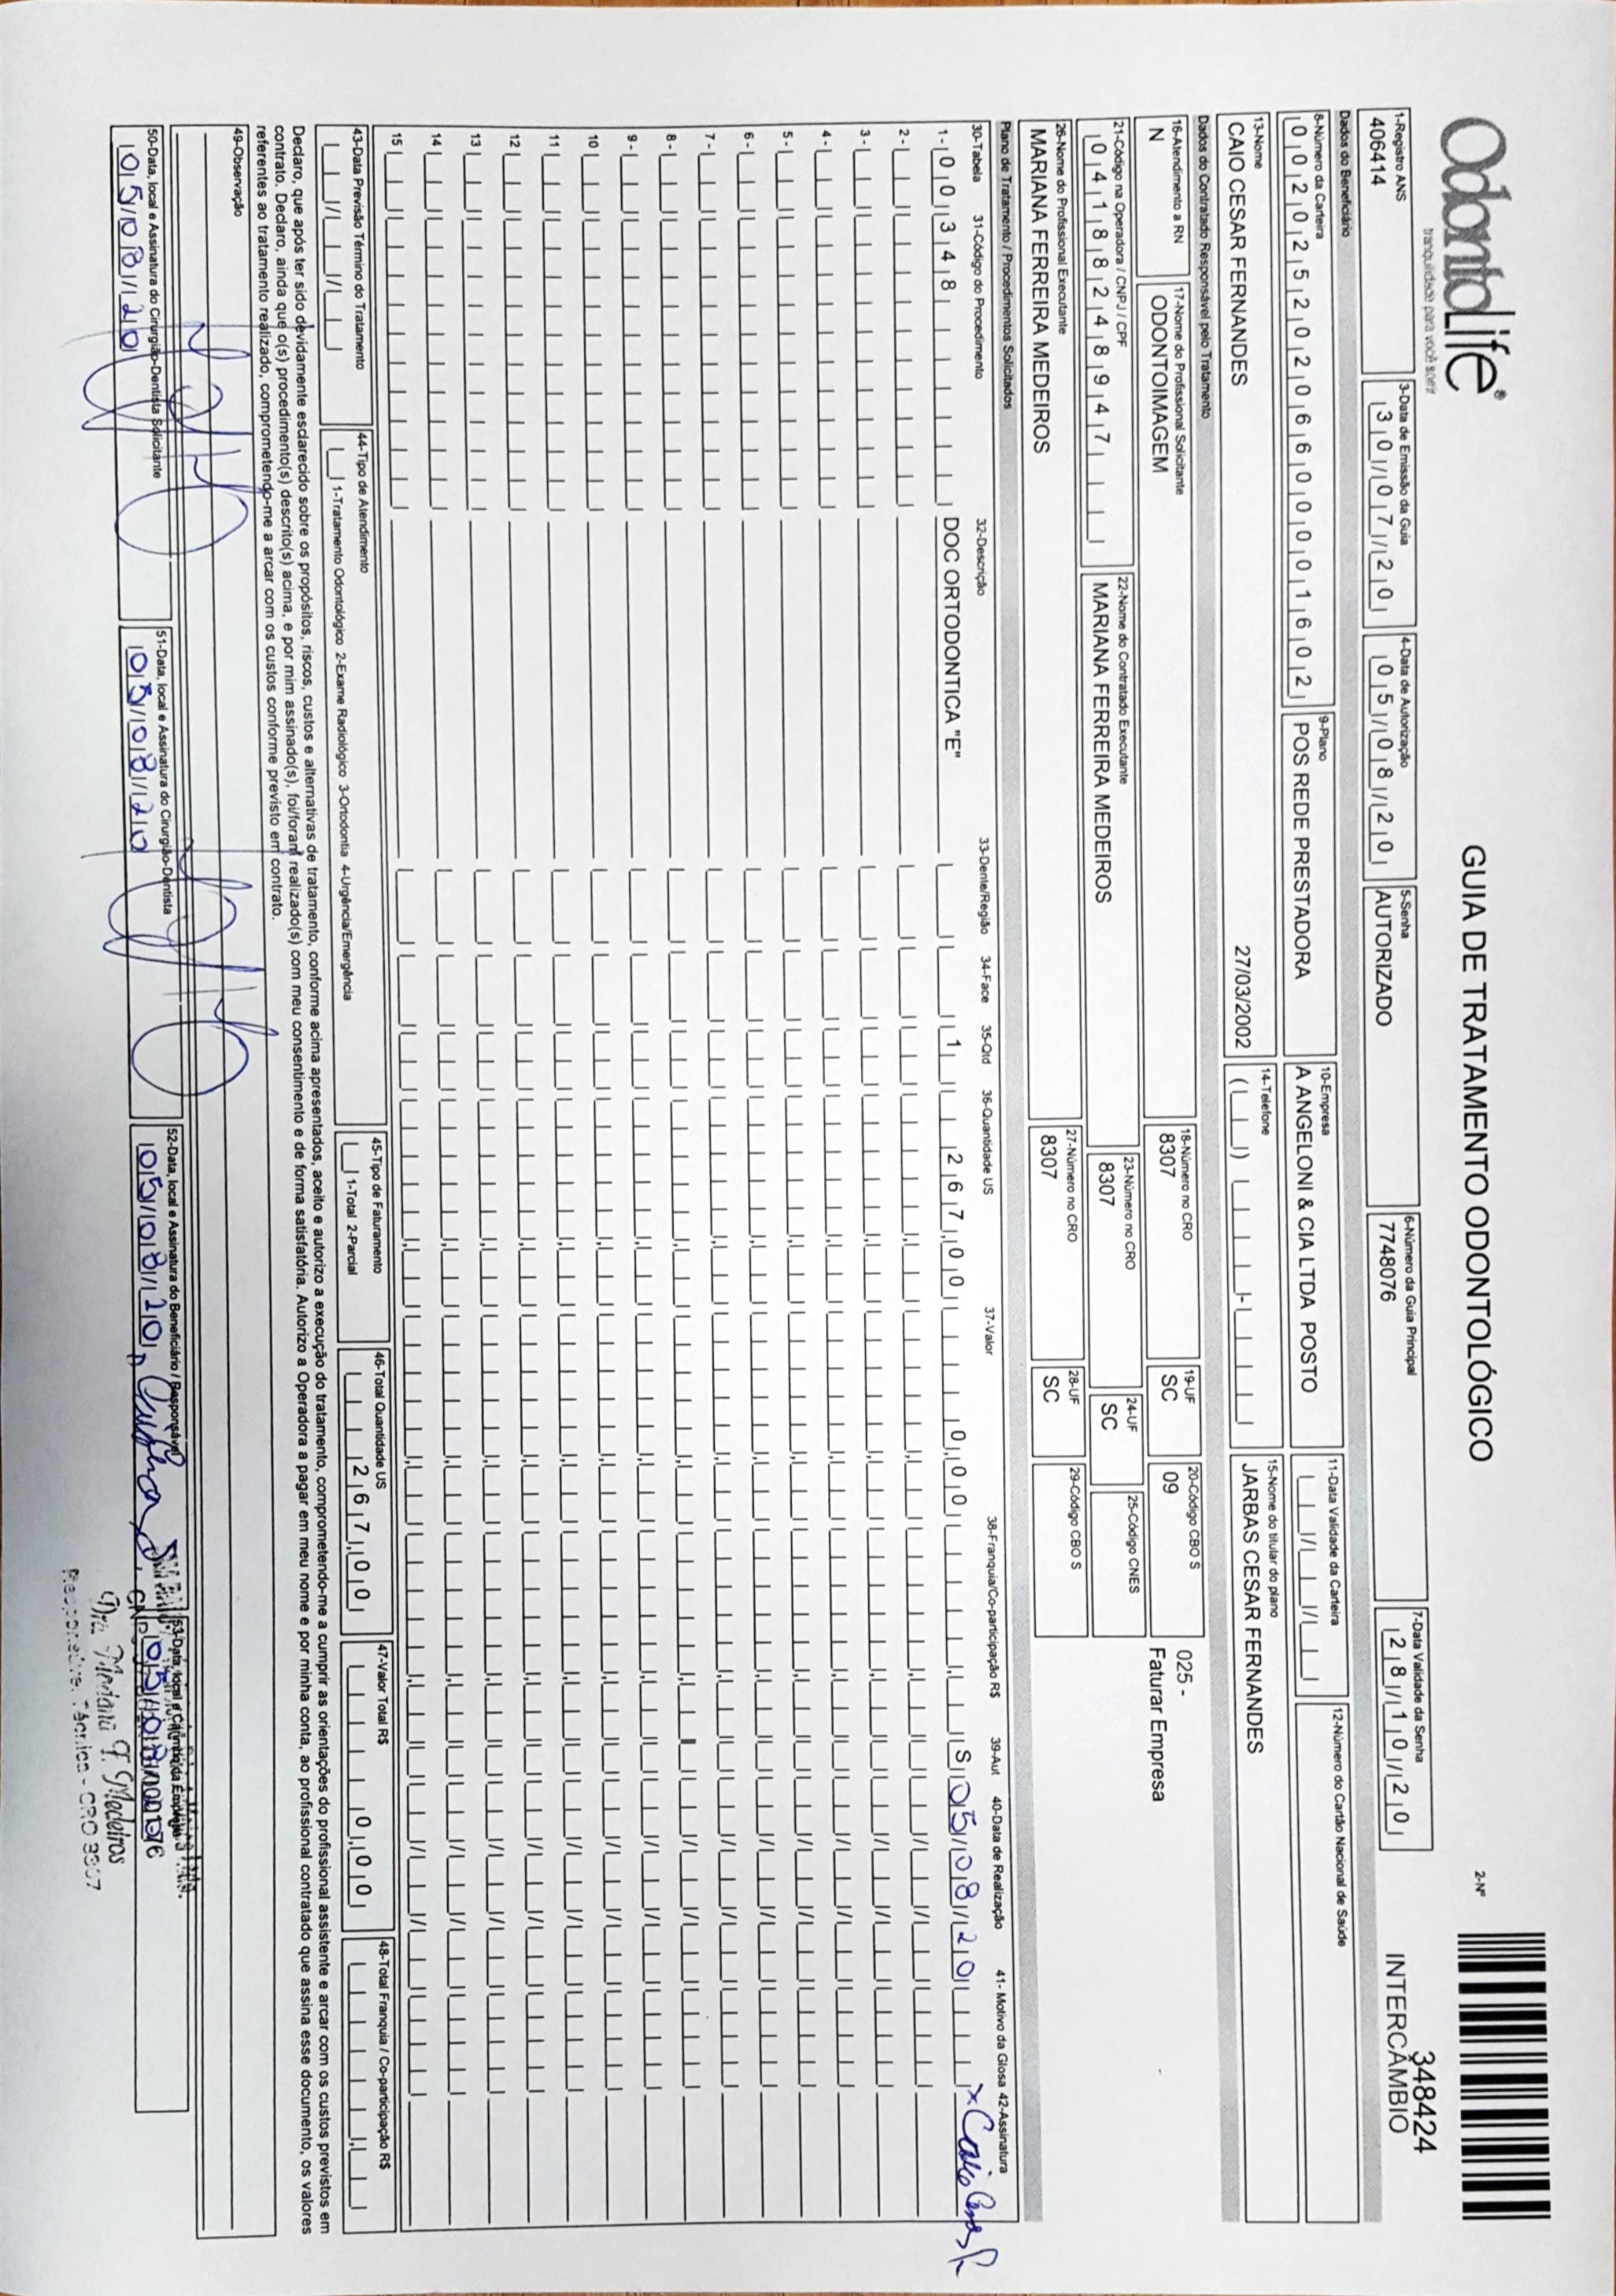 OdontoLife®
tranquilidade para você sorrir
GUIA DE TRATAMENTO ODONTOLÓGICO
2-Nº
348424
INTERCÂMBIO
1-Registro ANS
406414
3-Data de Emissão da Guia
30/07/20
4-Data de Autorização
05/08/20
5-Senha
AUTORIZADO
6-Número da Guia Principal
7748076
7-Data Validade da Senha
28/10/20
Dados do Beneficiário
8-Número da Carteira
00202520206600001602
9-Plano
POS REDE PRESTADORA
10-Empresa
A ANGELONI & CIA LTDA POSTO
11-Data Validade da Carteira
12-Número do Cartão Nacional de Saúde
13-Nome
CAIO CESAR FERNANDES
27/03/2002
14-Telefone
15-Nome do titular do plano
JARBAS CESAR FERNANDES
Dados do Contratado Responsável pelo Tratamento
16-Atendimento a RN
N
17-Nome do Profissional Solicitante
ODONTOIMAGEM
18-Número no CRO
8307
19-UF
SC
20-Código CBO S
09
025 -
Faturar Empresa
21-Código na Operadora / CNPJ / CPF
04188248947
22-Nome do Contratado Executante
MARIANA FERREIRA MEDEIROS
23-Número no CRO
8307
24-UF
SC
25-Código CNES
26-Nome do Profissional Executante
MARIANA FERREIRA MEDEIROS
27-Número no CRO
8307
28-UF
SC
29-Código CBO S
Plano de Tratamento / Procedimentos Solicitados
30-Tabela 31-Código do Procedimento 32-Descrição 33-Dente/Região 34-Face 35-Qtd 36-Quantidade US 37-Valor 38-Franquia/Co-participação R$ 39-Aut 40-Data de Realização 41- Motivo da Glosa 42-Assinatura
1- 00348 DOC ORTODONTICA "E" 1 267,00 0,00 S 05/08/20 x Caio Cesar F.
2-
3-
4-
5-
6-
7-
8-
9-
10
11
12
13
14
15
43-Data Previsão Término do Tratamento
44-Tipo de Atendimento
1-Tratamento Odontológico 2-Exame Radiológico 3-Ortodontia 4-Urgência/Emergência
45-Tipo de Faturamento
1-Total 2-Parcial
46-Total Quantidade US
267,00
47-Valor Total R$
0,00
48-Total Franquia / Co-participação R$
Declaro, que após ter sido devidamente esclarecido sobre os propósitos, riscos, custos e alternativas de tratamento, conforme acima apresentados, aceito e autorizo a execução do tratamento, comprometendo-me a cumprir as orientações do profissional assistente e arcar com os custos previstos em
contrato. Declaro, ainda que o(s) procedimento(s) descrito(s) acima, e por mim assinado(s), foi/foram realizado(s) com meu consentimento e de forma satisfatória. Autorizo a Operadora a pagar em meu nome e por minha conta, ao profissional contratado que assina esse documento, os valores
referentes ao tratamento realizado, comprometendo-me a arcar com os custos conforme previsto em contrato.
49-Observação
50-Data, local e Assinatura do Cirurgião-Dentista Solicitante
05/08/20
51-Data, local e Assinatura do Cirurgião-Dentista
05/08/20
52-Data, local e Assinatura do Beneficiário / Responsável
05/08/20
53-Data, local e Carimbo da Empresa
05/08
Dra Mariana F. Medeiros
Responsável Técnica - CRO 8307